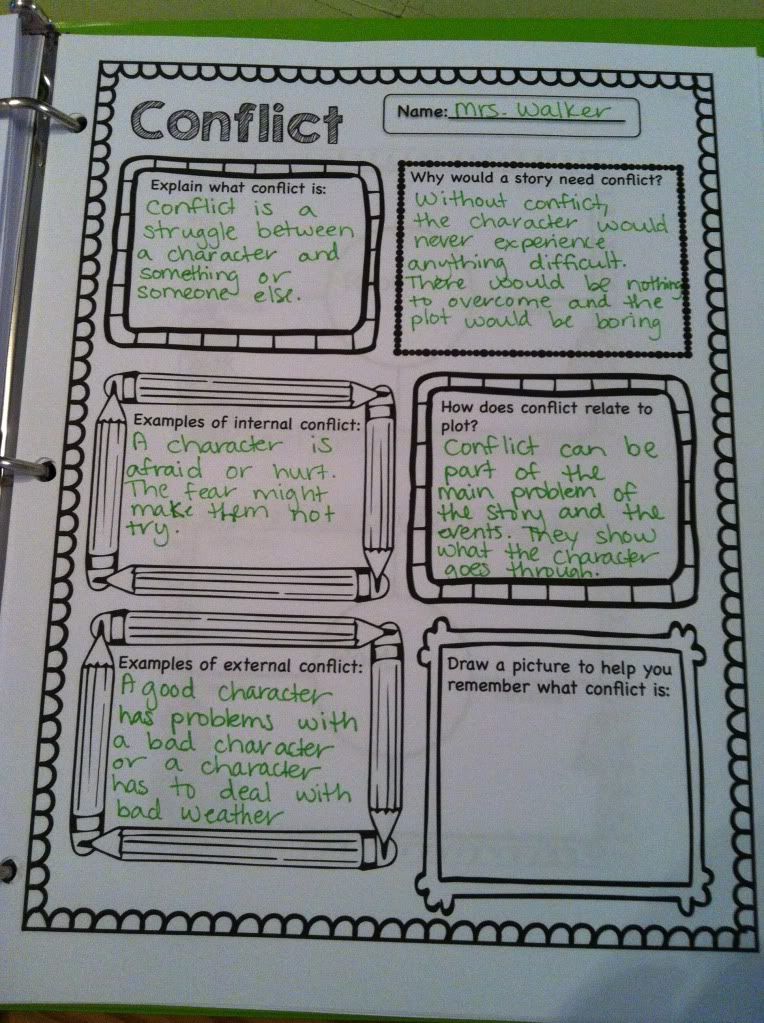 Conflict
Name: Mrs. Walker
Explain what conflict is:
Conflict is a
struggle between
a character and
something or
someone else.
Why would a story need conflict?
Without conflict,
the character would
never experience
anything difficult.
There would be nothing
to overcome and the
plot would be boring
Examples of internal conflict:
A character is
afraid or hurt.
The fear might
make them not
try.
How does conflict relate to
plot?
Conflict can be
part of the
main problem of
the story and the
events. They show
what the character
goes through.
Examples of external conflict:
A good character
has problems with
a bad character
or a character
has to deal with
bad weather
Draw a picture to help you
remember what conflict is: